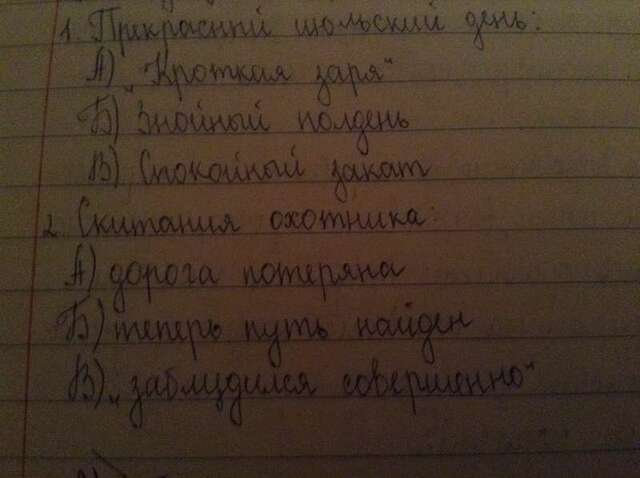 1. Прекрасный июльский день:
А) „Кроткая заря“
Б) Знойный полдень
В) Спокойный закат
2. Скитания охотника:
А) дорога потеряна
Б) теперь путь найден
В) „заблудился совершенно“